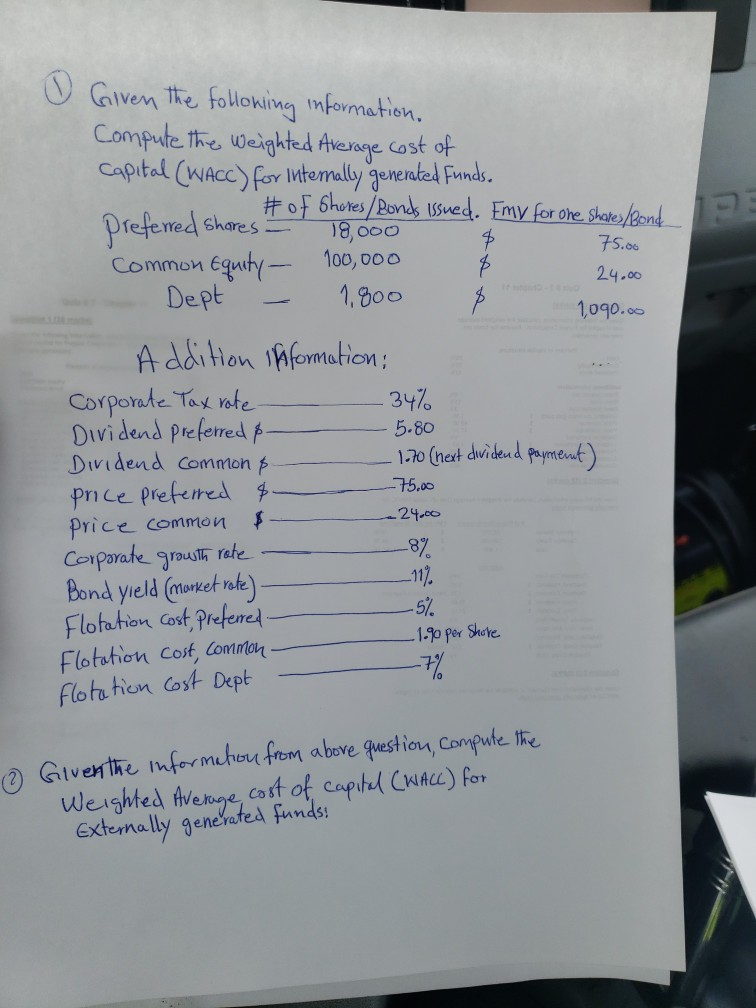 ① Given the following information.
Compute the Weighted Average cost of
Capital (WACC) for Internally generated Funds.
# of Shares/Bonds Issued. FMV for one Shares/Bond
Preferred Shares — 18,000 $ 75.00
Common Equity — 100,000 $ 24.00
Dept — 1,800 $ 1,090.00
Addition Information:
Corporate Tax rate — 34%
Dividend Preferred $ — 5.80
Dividend common $ — 1.70 (next dividend payment)
price preferred $ — 75.00
price common $ — 24.00
Corporate growth rate — 8%
Bond yield (market rate) — 11%
Flotation cost, Preferred — 5%
Flotation cost, Common — 1.90 per Share
Flotation cost Dept — 7%
② Given the information from above question, compute the
Weighted Average cost of capital (WACC) for
Externally generated funds: